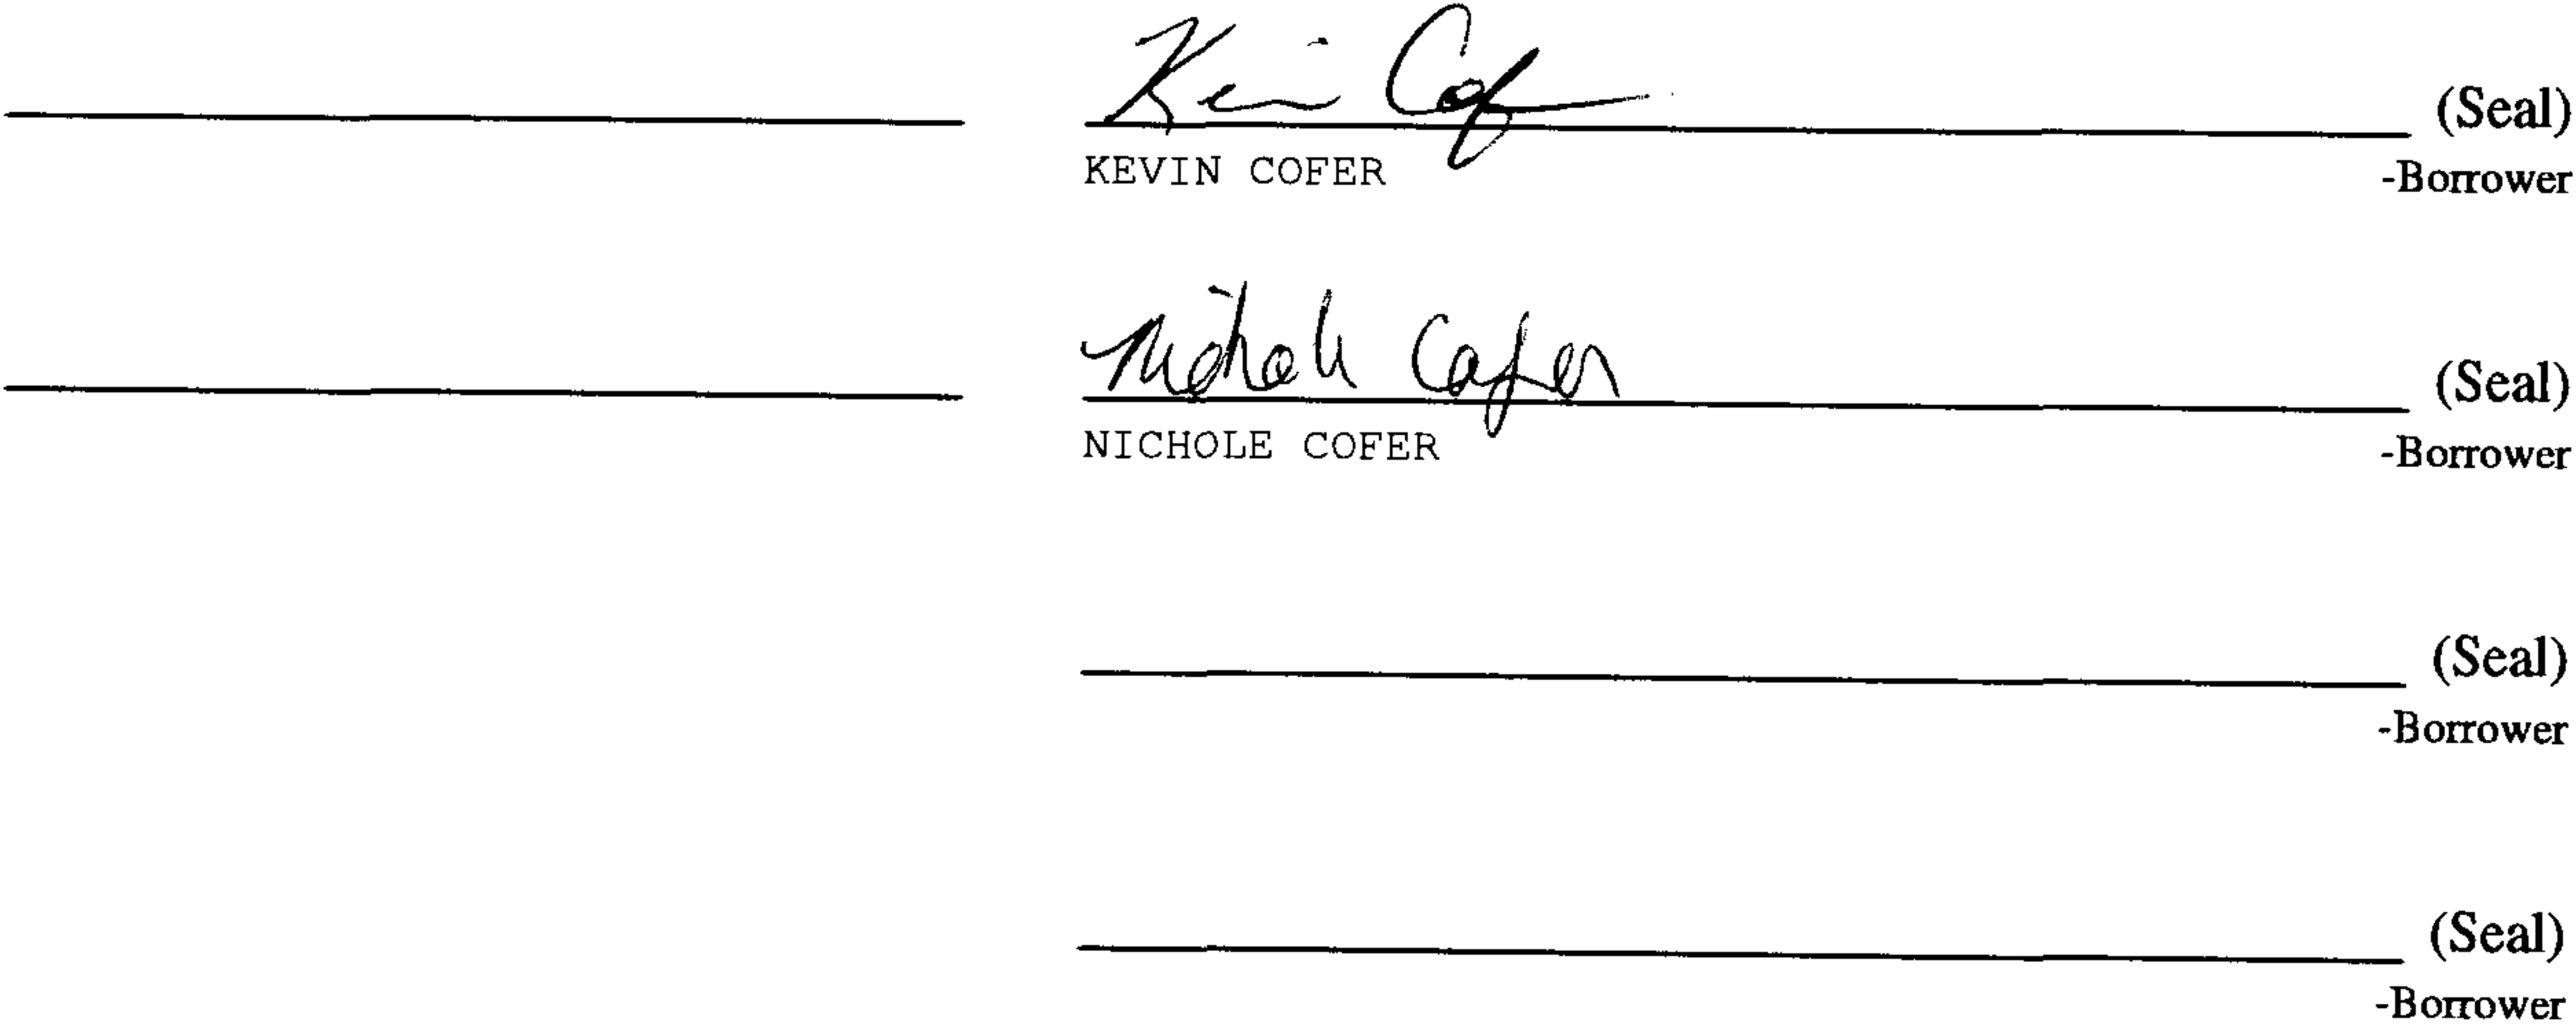 Kevin Cofer (Seal)
KEVIN COFER -Borrower
Nichole Cofer (Seal)
NICHOLE COFER -Borrower
(Seal)
-Borrower
(Seal)
-Borrower